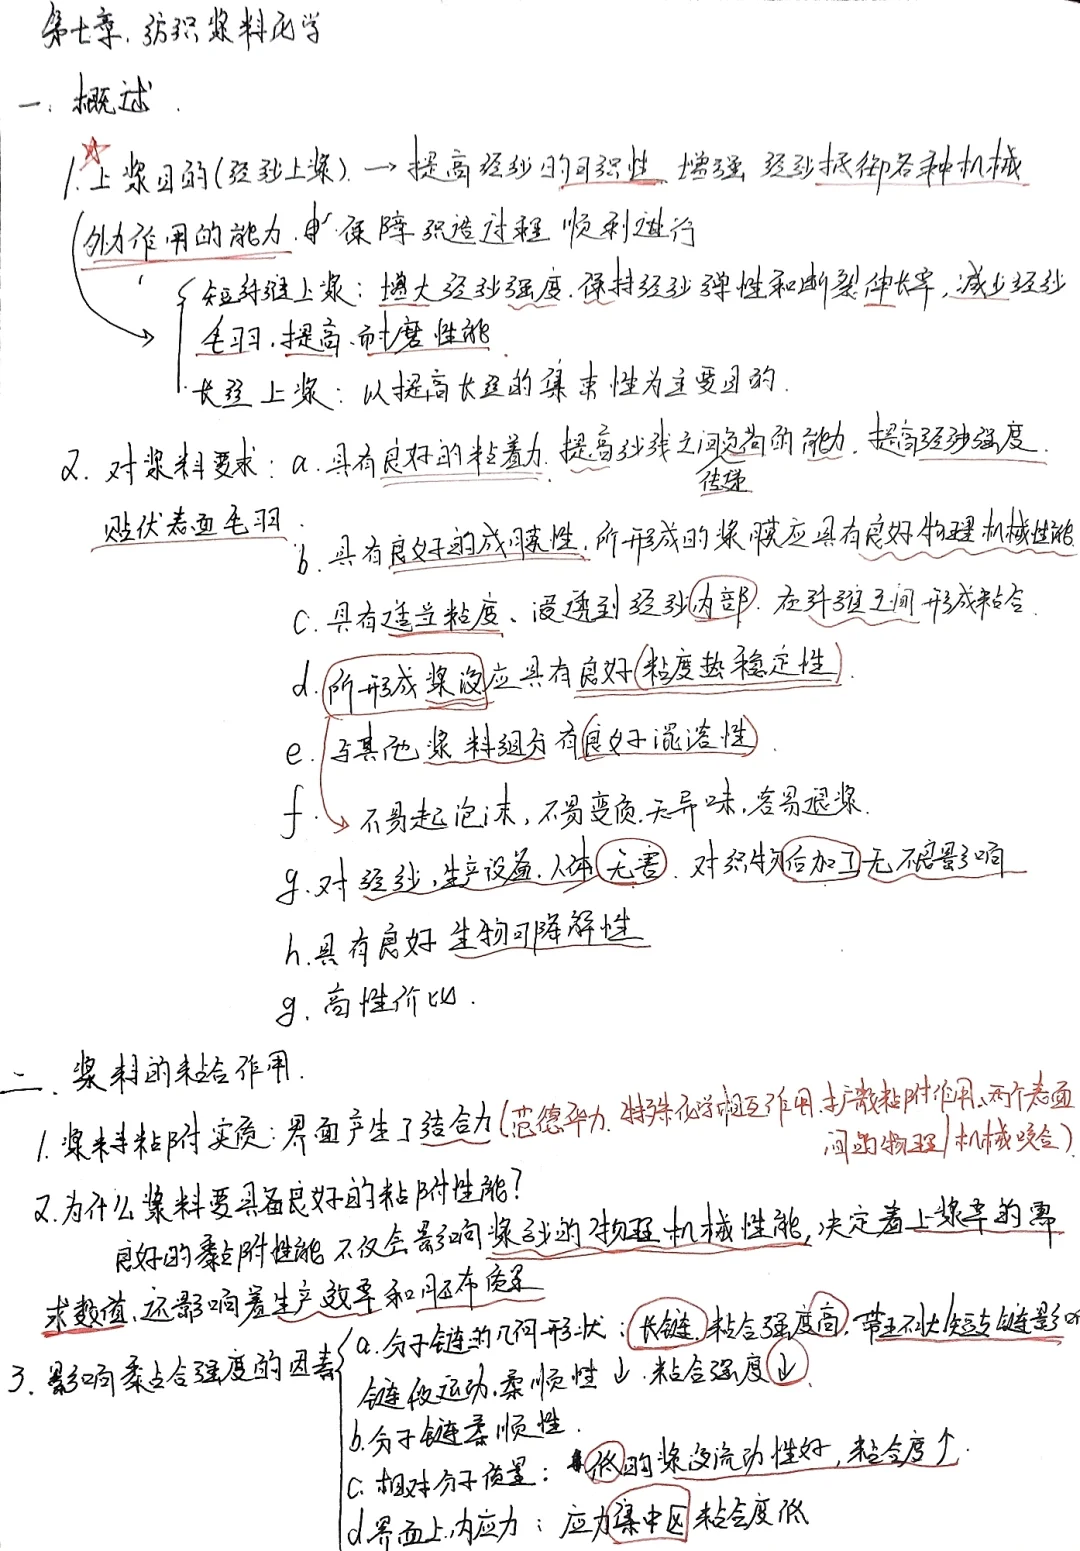 第七章. 纺织浆料化学
一. 概述.
1. 上浆目的(经纱上浆). → 提高经纱的可织性. 增强 经纱抵御各种机械
外力作用的能力. 保障织造过程 顺利进行
短纤维上浆: 增大经纱强度. 保持经纱弹性和断裂伸长率, 减少经纱
毛羽. 提高. 耐磨性能
长丝上浆: 以提高长丝的集束性为主要目的.
2. 对浆料要求: a. 具有良好的粘着力. 提高纱线之间负荷的能力. 提高经纱强度.
传递
贴伏表面毛羽.
b. 具有良好的成膜性. 所形成的浆膜应具有良好物理机械性能
c. 具有适当粘度、浸透到经纱内部. 在纤维之间形成粘合.
d. 所形成浆液应具有良好粘度热稳定性.
e. 与其他浆料组分有良好混溶性.
f. 不易起泡沫, 不易变质. 无异味, 容易退浆.
g. 对经纱, 生产设备. 人体无害. 对织物后加工无不良影响
h. 具有良好生物可降解性
g. 高性价比.
二. 浆料的粘合作用.
1. 浆料粘附实质: 界面产生了结合力(范德华力. 特殊化学相互作用. 扩散粘附作用、两个表面
间的物理/机械咬合)
2. 为什么浆料要具备良好的粘附性能?
良好的黏附性能不仅会影响浆纱的物理机械性能, 决定着上浆率的需
求数值, 还影响着生产效率和胚布质量
3. 影响黏合强度的因素
a. 分子链的几何形状: 长链, 粘合强度高. 带五不大短支链影响
链段运动. 柔顺性↓. 粘合强度↓.
b. 分子链柔顺性.
c. 相对分子质量: 低的浆液流动性好, 粘合度↑.
d. 界面上内应力: 应力集中区粘合度低